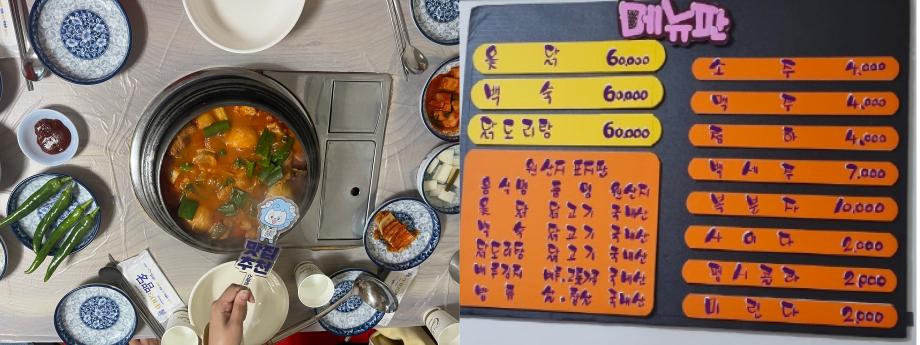 맛집
추천
名品
메뉴판
옻 닭 60,000
백 숙 60,000
닭도리탕 60,000
원산지 표지판
음식명 품 명 원산지
옻 닭 닭고기 국내산
백 숙 닭고기 국내산
닭도리탕 닭고기 국내산
국내산
국내산
소 주 4,000
맥 주 4,000
음 하 4,000
백 세 주 7,000
복 분 자 10,000
사 이 다 2,000
펩시콜라 2,000
미 린 다 2,000